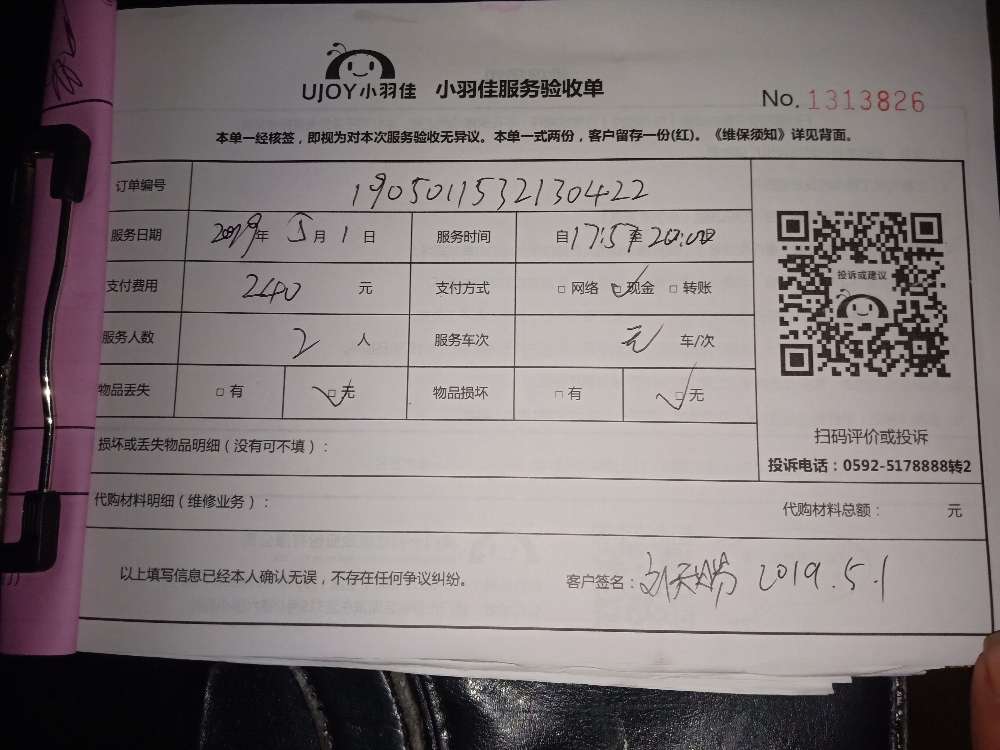 UJOY小羽佳 小羽佳服务验收单
No. 1313826
本单一经核签，即视为对本次服务验收无异议。本单一式两份，客户留存一份(红)。《维保须知》详见背面。
订单编号 1905011532130422
服务日期 2019年 5月 1日 服务时间 自17:57至20:00
支付费用 240 元 支付方式 □ 网络 □ 现金 □ 转账
服务人数 2 人 服务车次 无 车/次
物品丢失 □ 有 □ 无 物品损坏 □ 有 □ 无
投诉或建议
扫码评价或投诉
投诉电话：0592-5178888转2
损坏或丢失物品明细（没有可不填）：
代购材料明细（维修业务）： 代购材料总额： 元
以上填写信息已经本人确认无误，不存在任何争议纠纷。 客户签名： 2019.5.1